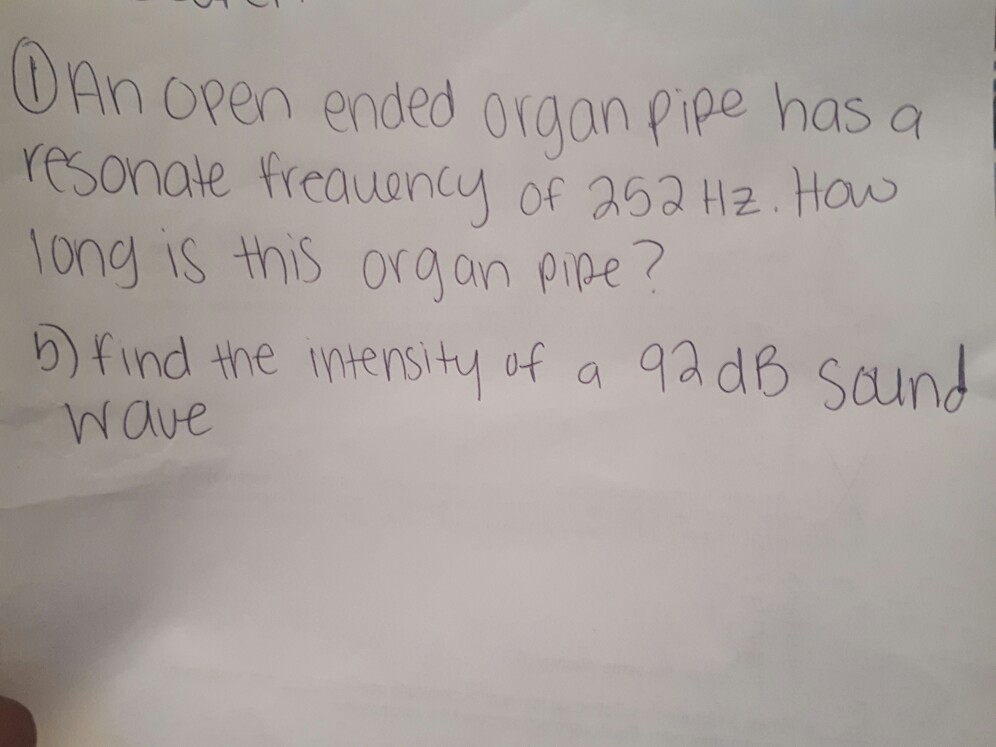 ① An open ended organ pipe has a
resonate frequency of 252 Hz. How
long is this organ pipe?
b) find the intensity of a 92 dB sound
wave